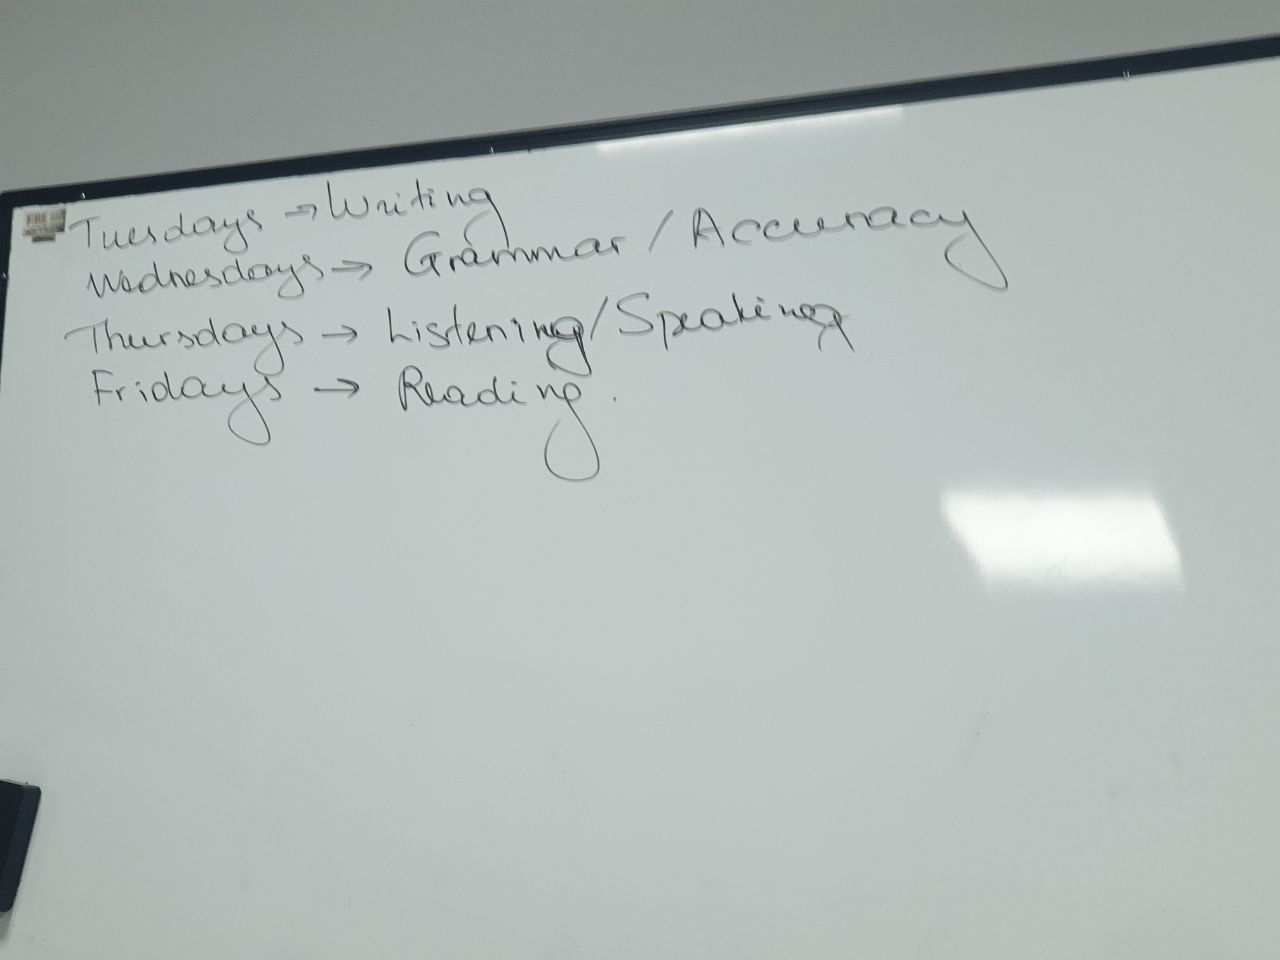 Tuesdays → Writing
Wednesdays → Grammar / Accuracy
Thursdays → Listening/Speaking
Fridays → Reading.